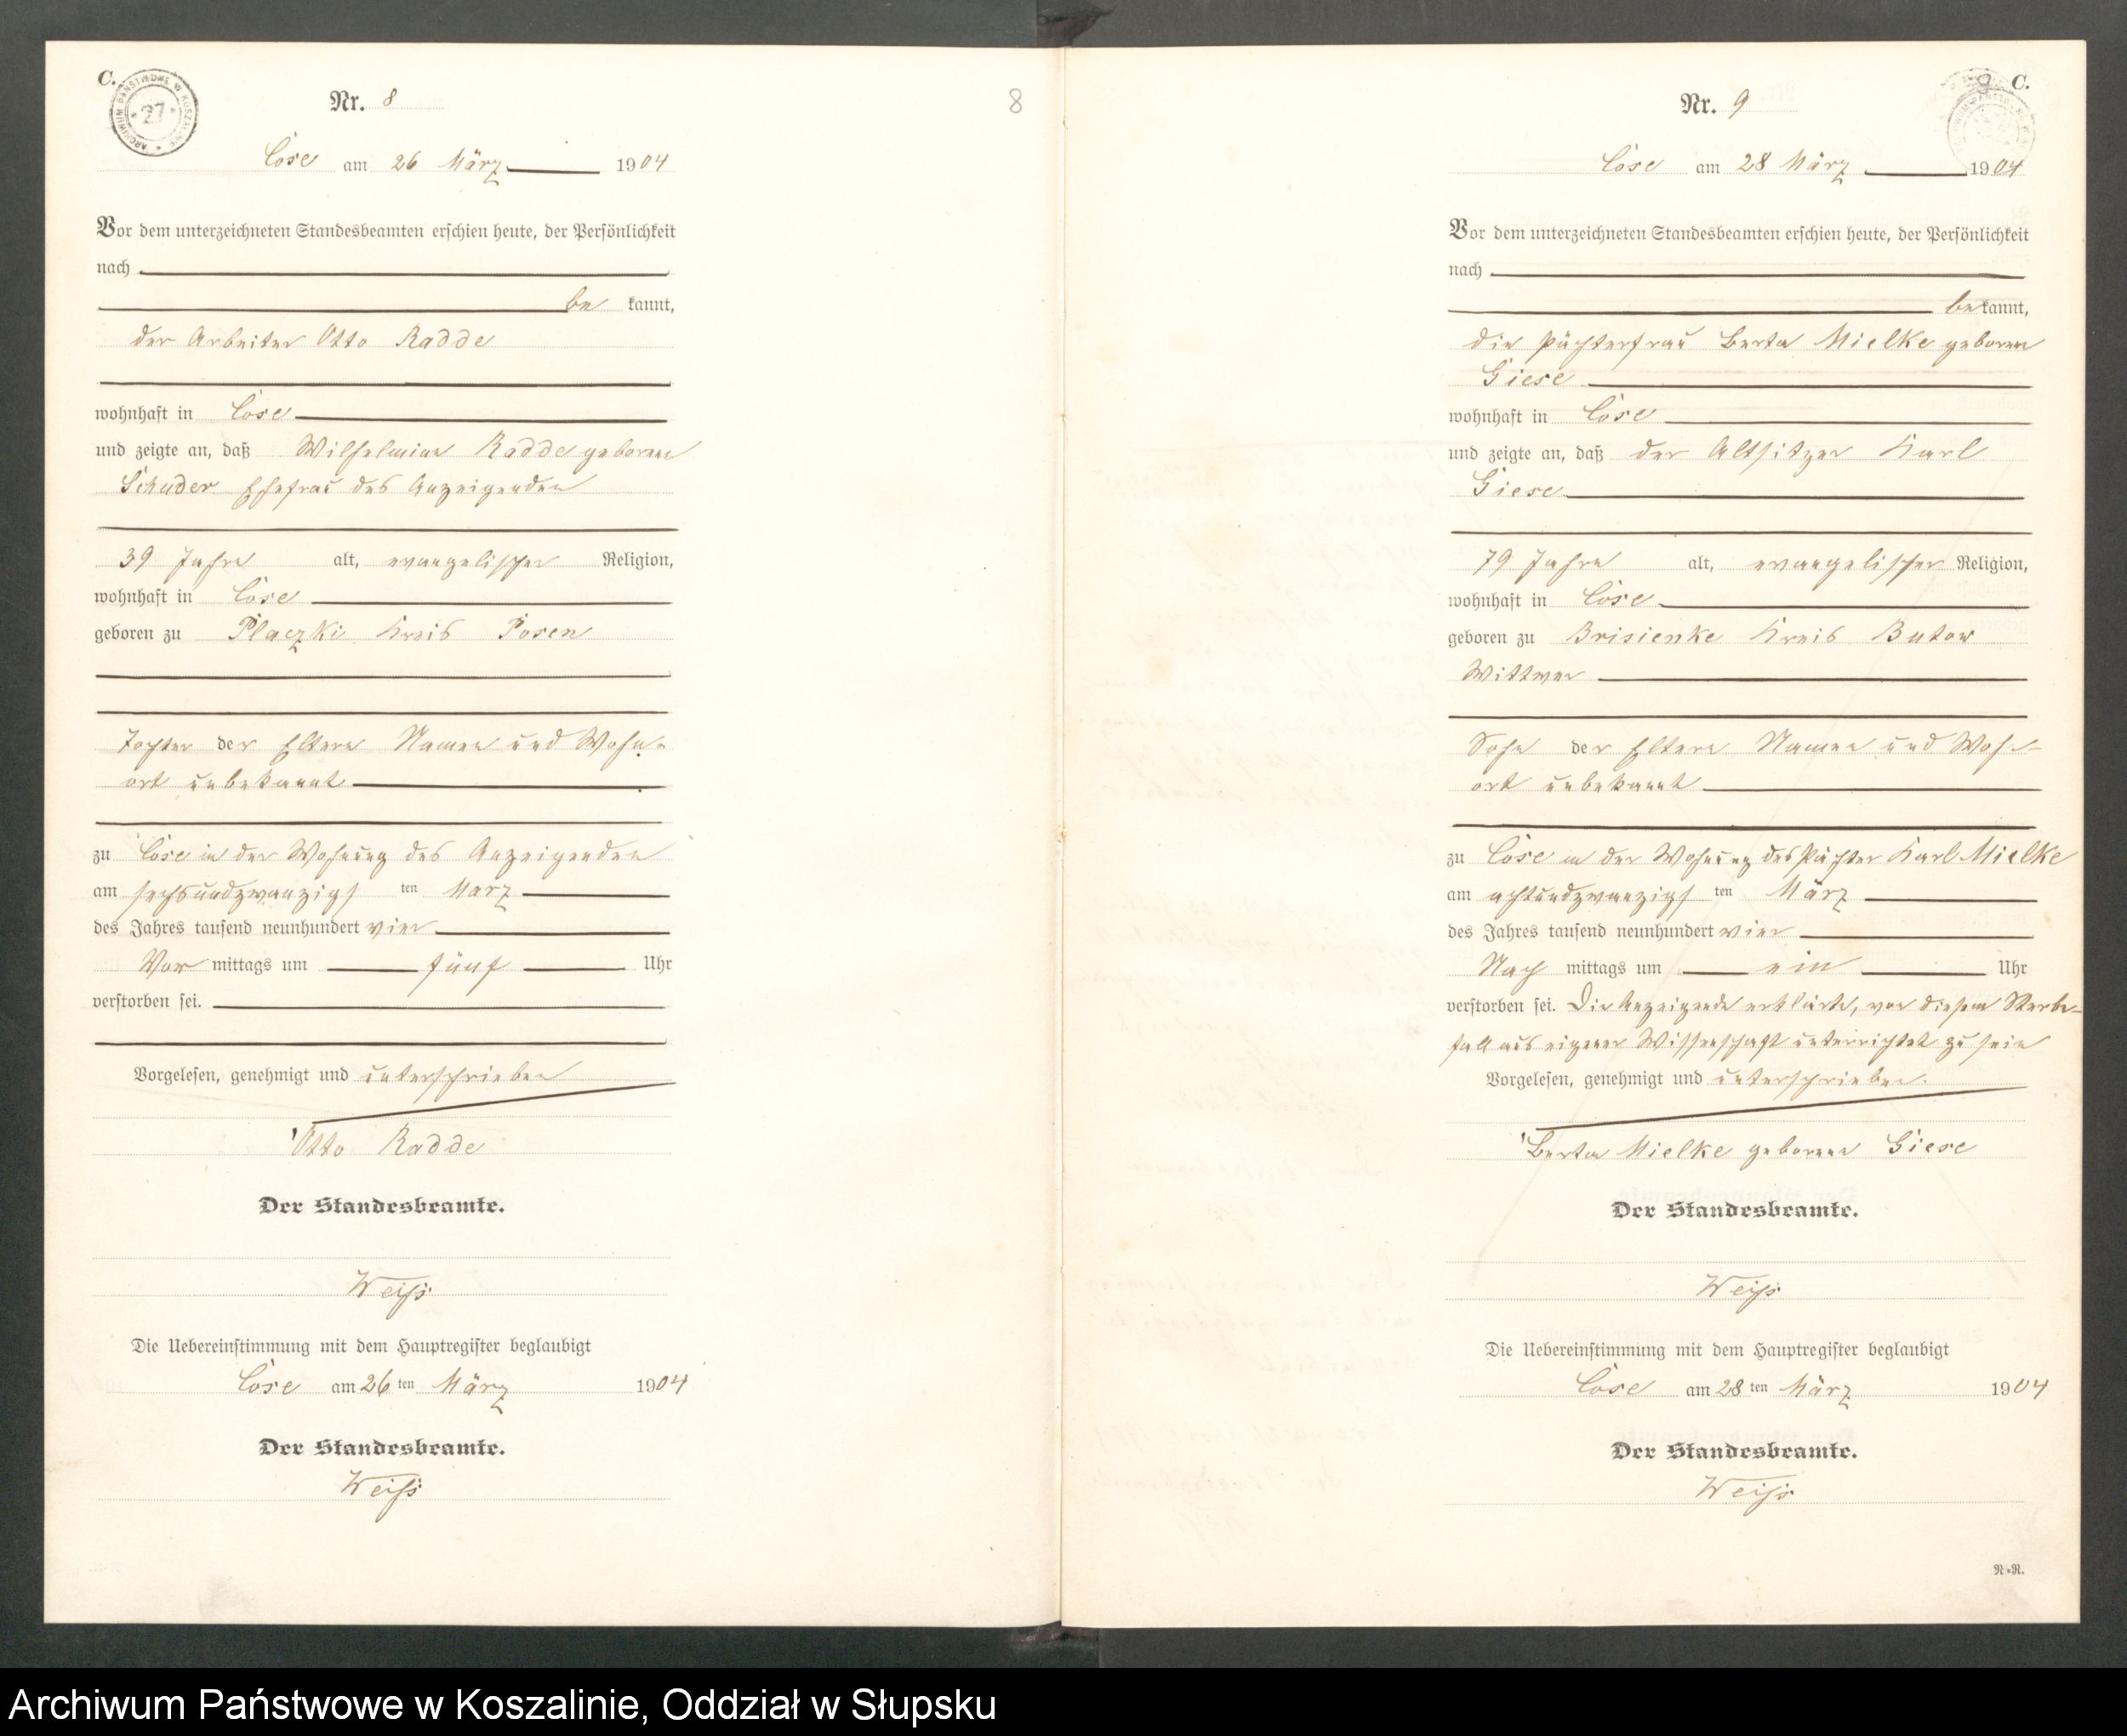 C.
ARCHIWUM PAŃSTWOWE W KOSZALINIE
27
Nr. 8
8
Cose am 26 März 1904
Vor dem unterzeichneten Standesbeamten erschien heute, der Persönlichkeit
nach
be kannt,
der Arbeiter Otto Radde
wohnhaft in Cose
und zeigte an, daß Wilhelmine Radde geborene
Schuder Ehefrau des Anzeigenden
39 Jahre alt, evangelischer Religion,
wohnhaft in Cose
geboren zu Placzki Kreis Posen
Tochter der Eltern Namen und Wohn-
ort unbekannt
zu Cose in der Wohnung des Anzeigenden
am sechsundzwanzigs ten März
des Jahres tausend neunhundert vier
Vor mittags um fünf Uhr
verstorben sei.
Vorgelesen, genehmigt und unterschrieben
Otto Radde
Der Standesbeamte.
Weiß
Die Uebereinstimmung mit dem Hauptregister beglaubigt
Cose am 26 ten März 1904
Der Standesbeamte.
Weiß
9 C.
Nr. 9
Cose am 28 März 1904
Vor dem unterzeichneten Standesbeamten erschien heute, der Persönlichkeit
nach
be kannt,
die Pächterfrau Berta Mielke geborene
Giese
wohnhaft in Cose
und zeigte an, daß der Altsitzer Karl
Giese
79 Jahre alt, evangelischer Religion,
wohnhaft in Cose
geboren zu Brisienke Kreis Butow
Wittwer
Sohn der Eltern Namen und Wohn-
ort unbekannt
zu Cose in der Wohnung des Pächter Karl Mielke
am achtundzwanzigs ten März
des Jahres tausend neunhundert vier
Nach mittags um ein Uhr
verstorben sei. Die Anzeigende erklärte, von diesem Sterbe-
fall aus eigener Wissenschaft unterrichtet zu sein
Vorgelesen, genehmigt und unterschrieben.
Berta Mielke geborene Giese
Der Standesbeamte.
Weiß
Die Uebereinstimmung mit dem Hauptregister beglaubigt
Cose am 28 ten März 1904
Der Standesbeamte.
Weiß
R.-R.
Archiwum Państwowe w Koszalinie, Oddział w Słupsku